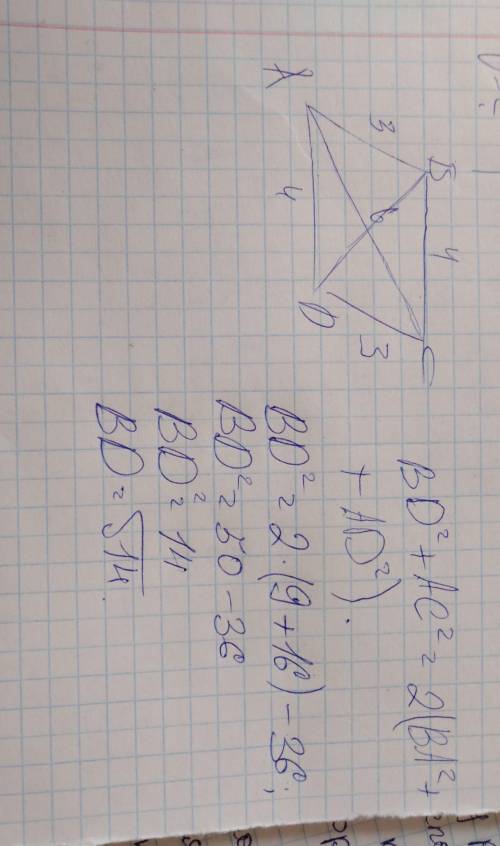 B
4
C
3
6
3
A
4
D
BD² + AC² = 2(BA² +
+ AD²).
BD² = 2·(9 + 16) - 36;
BD² = 50 - 36
BD² = 14
BD = √14.